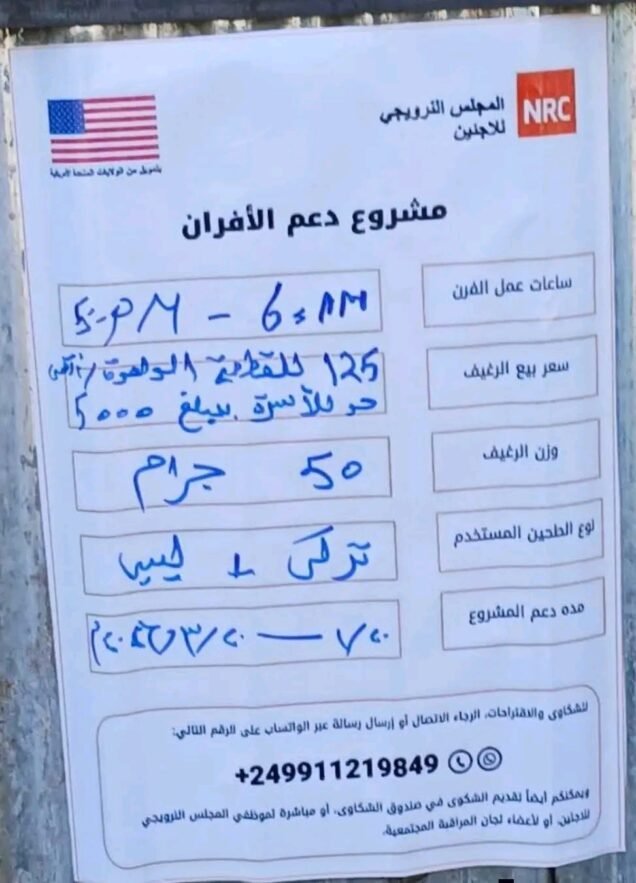 NRC
المجلس النرويجي
للاجئين
بتمويل من الولايات المتحدة الأمريكية
مشروع دعم الأفران
ساعات عمل الفرن
6:AM - 5:PM
سعر بيع الرغيف
125 للقطعة الواحدة / أقصى
حد للأسرة بمبلغ 5000
وزن الرغيف
50 جرام
نوع الطحين المستخدم
تركي + ليبي
مده دعم المشروع
للشكاوى والاقتراحات، الرجاء الاتصال أو إرسال رسالة عبر الواتساب على الرقم التالي:
+249911219849
ويمكنكم أيضاً تقديم الشكوى في صندوق الشكاوى، أو مباشرة لموظفي المجلس النرويجي
للاجئين، أو لأعضاء لجان المراقبة المجتمعية.